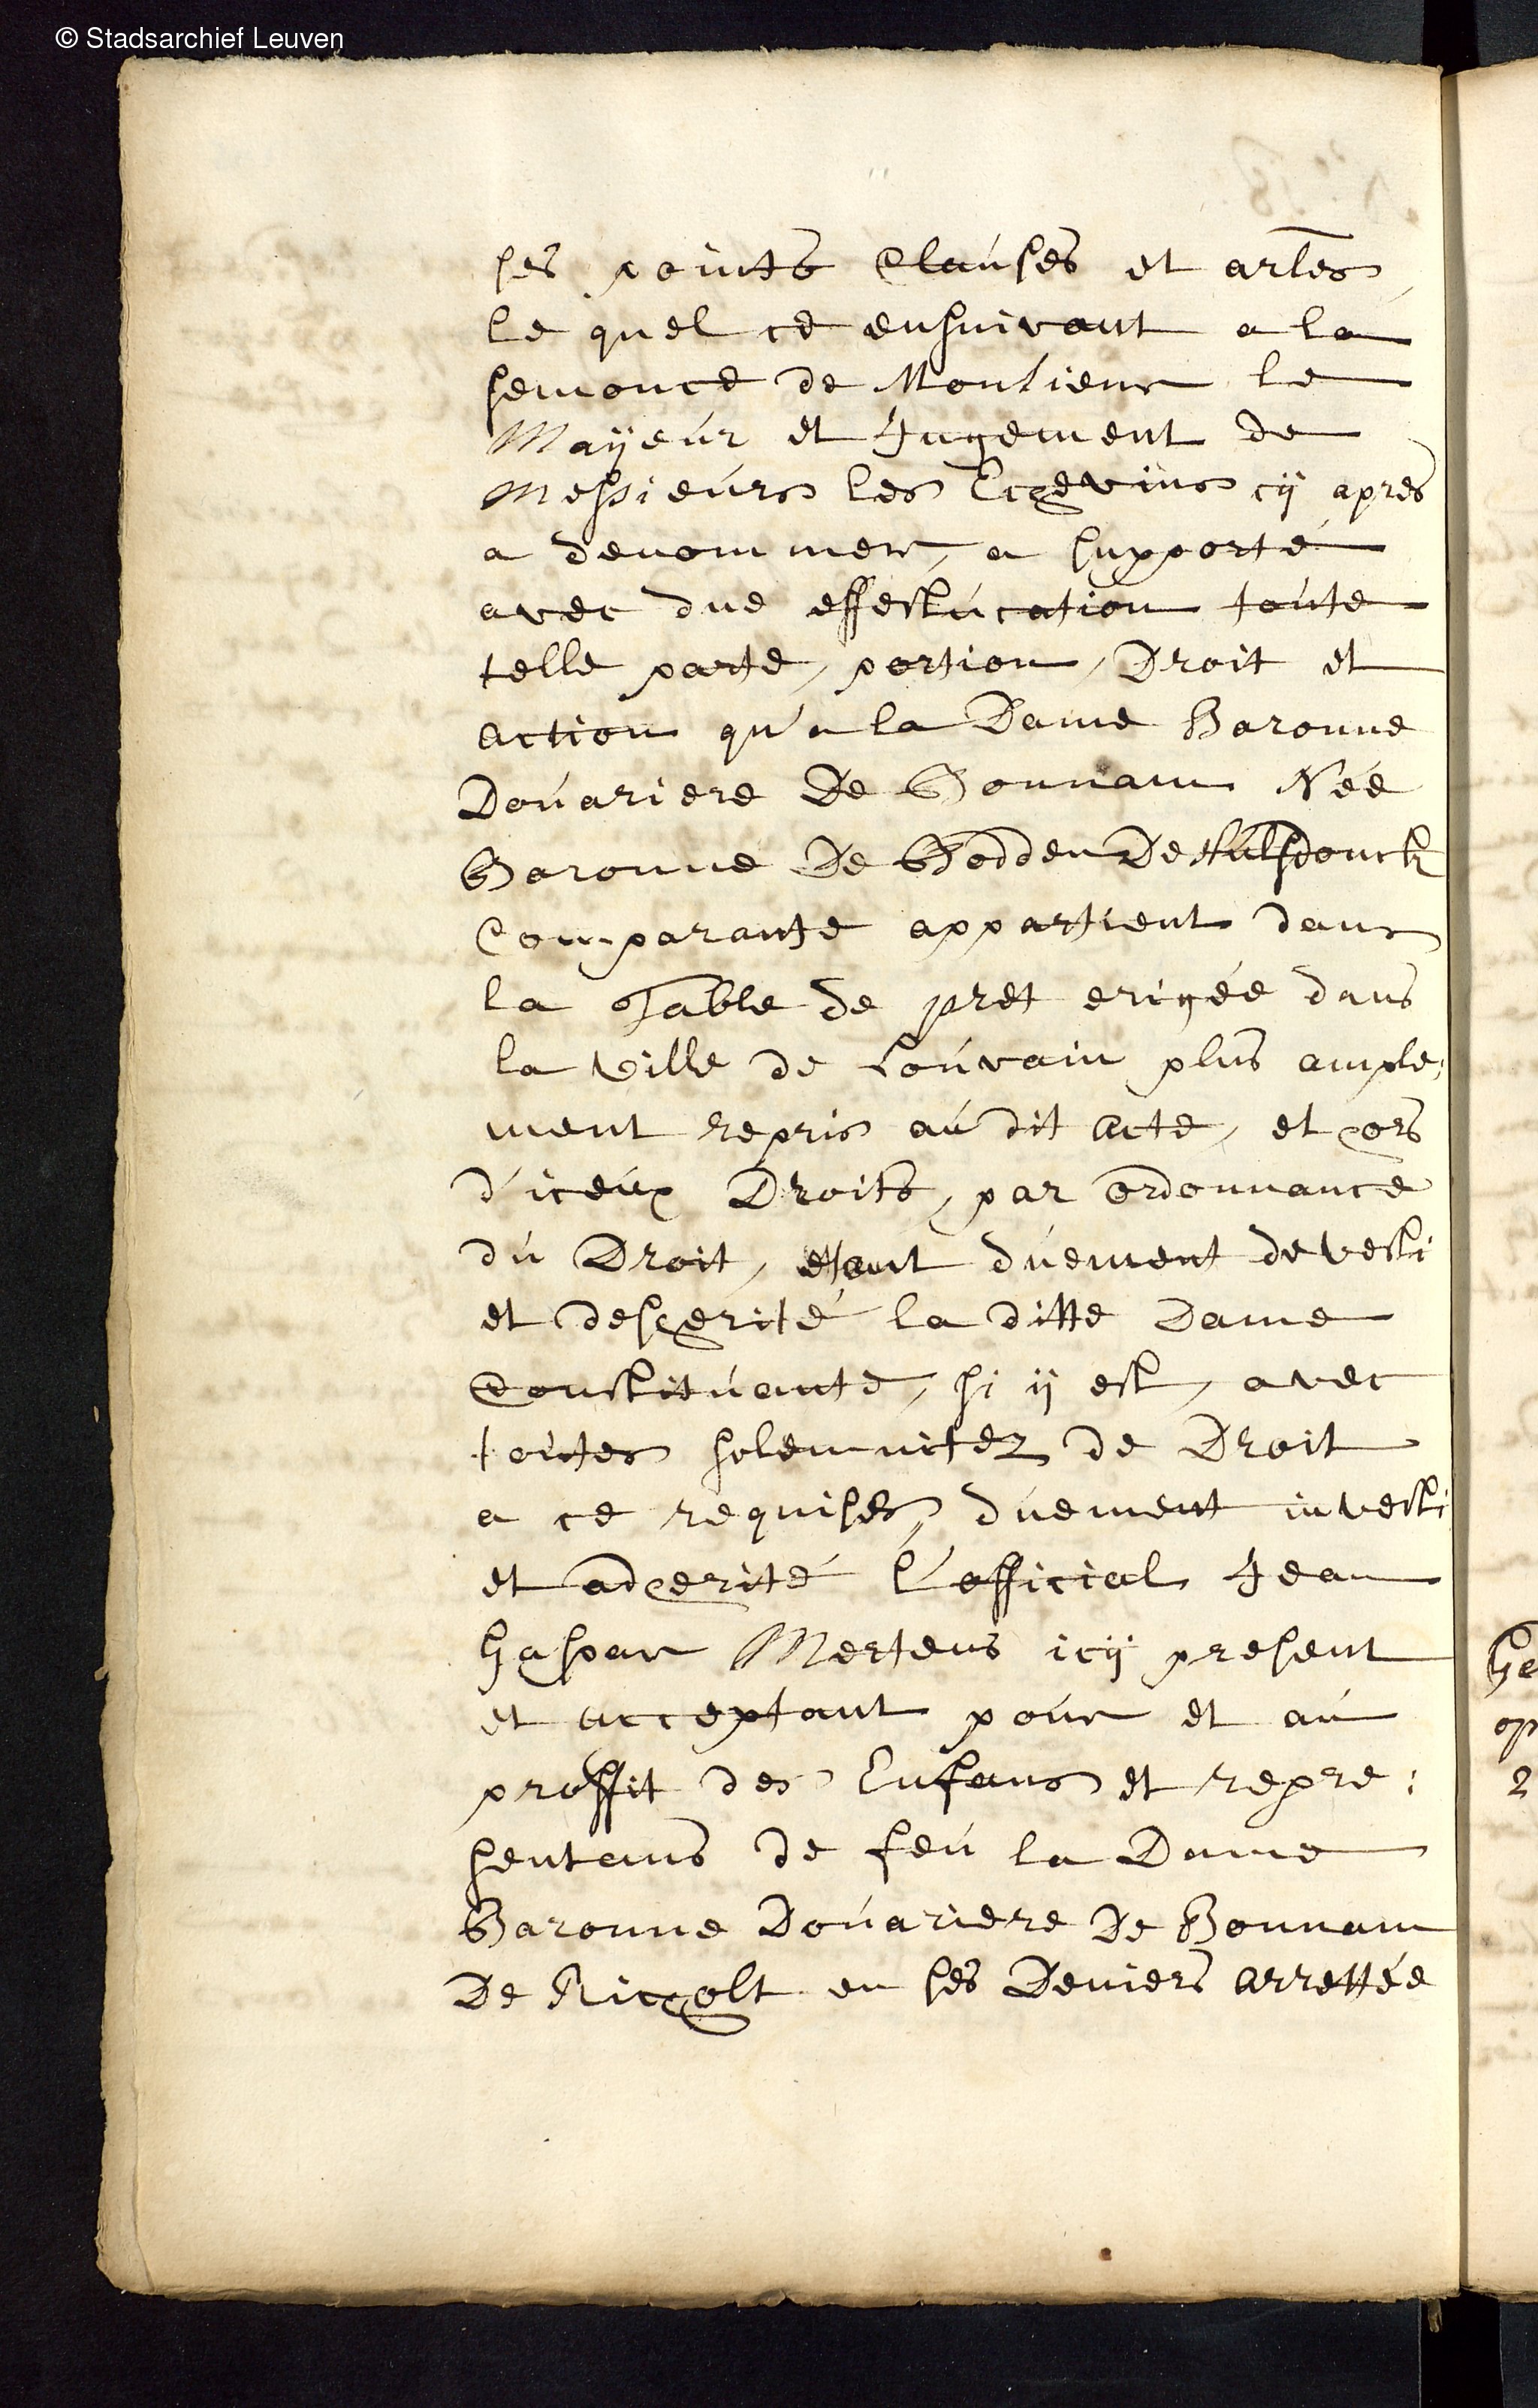 © Stadsarchief Leuven
ses points Clauses et artles
le quel ce ensuivant a la
semonce de Monsieur le
Maÿeur et Jugement de
Messieurs les Echevins cÿ apres
a denommer, a supporté
avec due effestucation toute
telle parte, portion, Droit et
action qu'a la Dame Baronne
Douariere De Bonnam Née
Baronne De Godden De Hulsdonck
Comparante appartient dans
la Table de pret erigée dans
la Ville de Louvain plus ample:
ment repris au dit acte, et hors
d'iceux Droits, par ordonnance
du Droit, estant duement devesti
et desherité la ditte Dame
Constituante, si ÿ est, avec
toutes solemnitez de Droit
a ce requises, duement investi
et adherité l'official Jean
Gaspar Mertens icÿ present
et acceptant pour et au
proffit des Enfans et repre:
sentans de feu la Dame
Baronne Douariere De Bonnam
De Richolt en ses Deniers arrettée